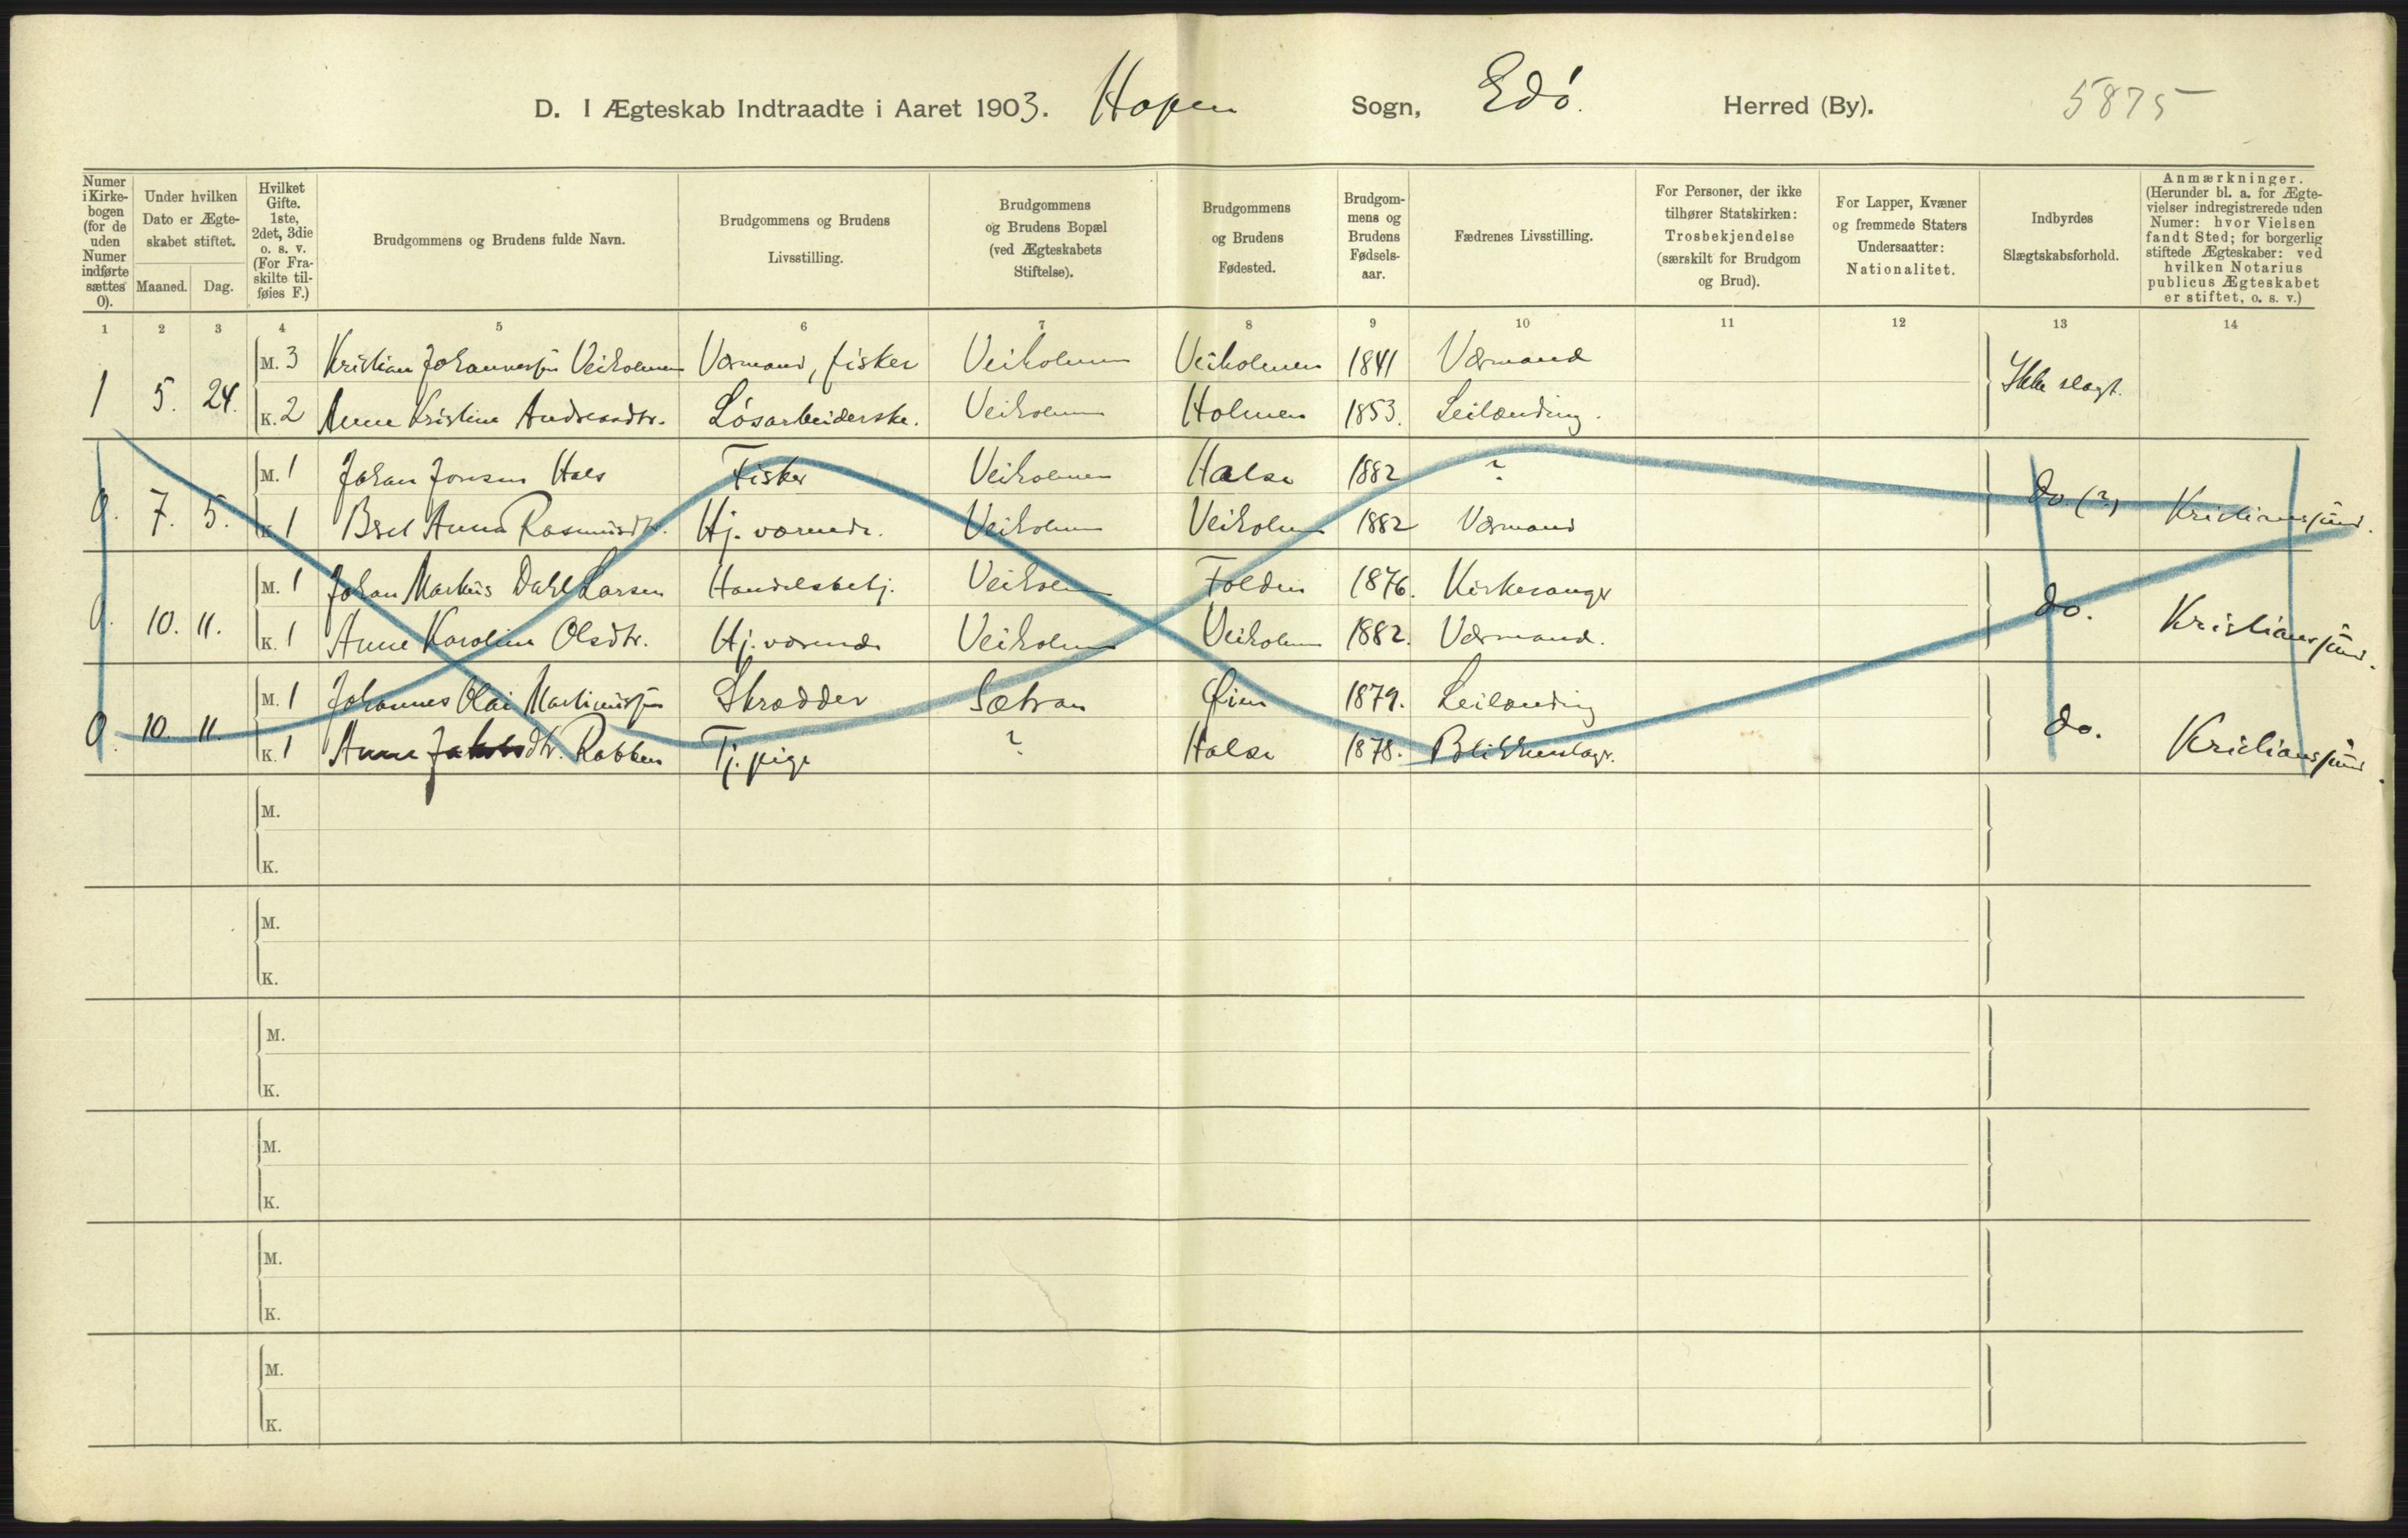 D. I Ægteskab Indtraadte i Aaret 1903. Hopen Sogn, Edø. Herred (By). 5875
Numer i Kirkebogen (for de uden Numer indførte sættes 0).
Under hvilken Dato er Ægteskabet stiftet.
Maaned. Dag.
Hvilket Gifte. 1ste, 2det, 3die o. s. v. (For Fraskilte tilføies F.)
Brudgommens og Brudens fulde Navn.
Brudgommens og Brudens Livsstilling.
Brudgommens og Brudens Bopæl (ved Ægteskabets Stiftelse).
Brudgommens og Brudens Fødested.
Brudgommens og Brudens Fødselsaar.
Fædrenes Livsstilling.
For Personer, der ikke tilhører Statskirken: Trosbekjendelse (særskilt for Brudgom og Brud).
For Lapper, Kvæner og fremmede Staters Undersaatter: Nationalitet.
Indbyrdes Slægtskabsforhold.
Anmærkninger. (Herunder bl. a. for Ægtevielser indregistrerede uden Numer: hvor Vielsen fandt Sted; for borgerlig stiftede Ægteskaber: ved hvilken Notarius publicus Ægteskabet er stiftet, o. s. v.)
1 2 3 4 5 6 7 8 9 10 11 12 13 14
M. 3 Kristian Johannessen Veiholmen Værmand, fisker Veiholmen Veiholmen 1841 Værmand
1 5. 24. Ikke slægt.
K. 2 Anne Kristine Andreasdtr. Løsarbeiderske. Veiholmen Holmen 1853. Leilænding.
M. 1 Johan Jonsen Hals Fisker Veiholmen Halse 1882 ?
0. 7. 5. do. (?) Kristiansund.
K. 1 Anna Rasmusdtr. Hj. værende. Veiholmen Veiholmen 1882 Værmand
M. 1 Johan Markus Dahl Larsen Handelsbetj. Veiholmen Folden 1876. Kirkesanger
0. 10. 11. do. Kristiansund.
K. 1 Anne Karoline Olsdtr. Hj. værende Veiholmen Veiholmen 1882. Værmand.
M. 1 Johannes Olai Martinussen Skrædder Sætran Øien 1879. Leilænding
0. 10. 11. do. Kristiansund.
K. 1 Anne Jakobsdtr. Rabben Tj. pige ? Halse 1878. Blikkenslager.
M.
K.
M.
K.
M.
K.
M.
K.
M.
K.
M.
K.